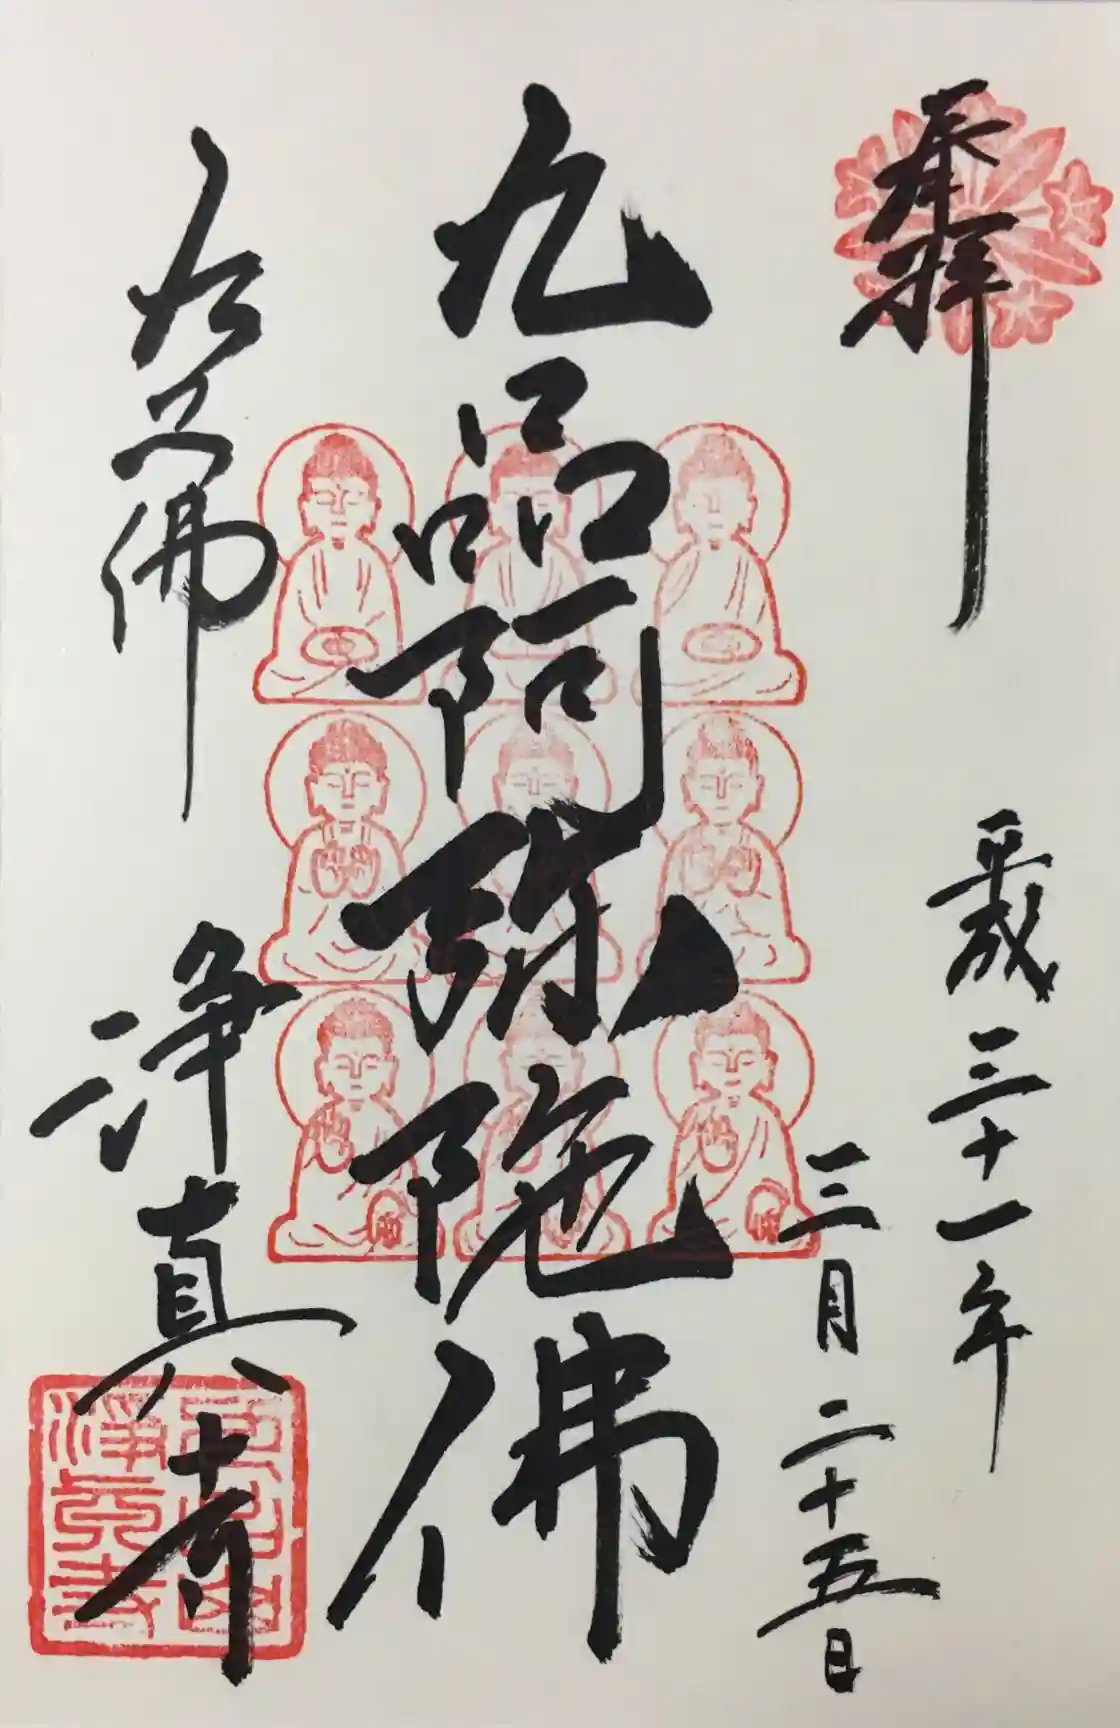 奉拝
平成三十一年
三月二十五日
九品阿弥陀佛
九品佛
浄真寺
淨眞寺